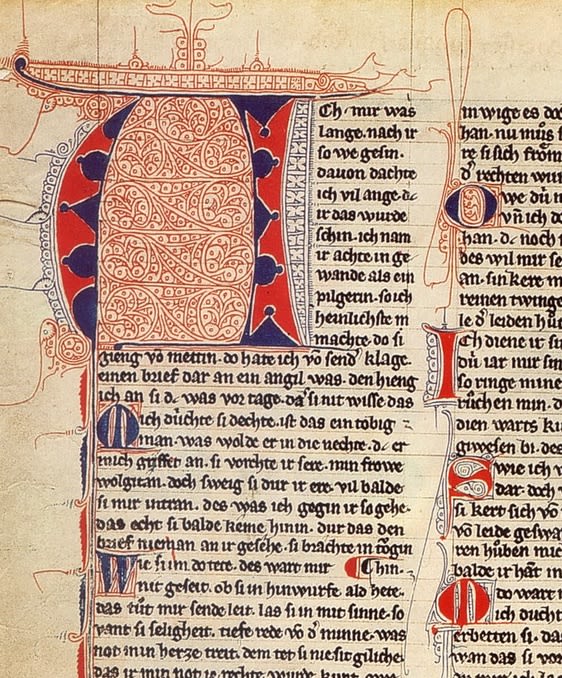 ACh · mir was
lange · nach ir
so we gesin ·
dauon dachte
ich vil ange · dc
ir das wurde
schin · ich nam
ir achte in ge
wande als ein
pilgerin · so ich
heinlichste m
machte · do si
gieng vō mettin · do hate ich vō sendͤ klage ·
einen brief dar an ein angil was · den hieng
ich an si dc was vor tage · dc si nit wisse das
Mich duͥchte si dechte · ist das ein tobig
man · was wolde er in die nechte · dc er
mich griffet an · si vorchte ir sere · min frowe
wolgitan · doch sweig si dur ir ere · vil balde
si mir intran · des was ich gegin ir so gehe ·
das echt si balde keme hinin · dur das den
brief nieman an ir gesehe · si brachte in tōgin
Wie si im do tete · des wart mir hin ·
nit geseit · ob si in hinwurfe ald hete ·
das tuͦt mir sende leit · las si in mit sinne · so
vant si seligheit · tiefe rede vō dͤ minne · was
not min herze treit · dem tet si nie sit gilichē
in wige es do
han · nu muͦs
re si sich frōm
dͤ rechten wu
Owe duͥ m
vn̄ ich do
han · dc noch
des wil mir se
an · sin kere m
reinen twinge
le dͤ leiden huͦ
Ich diene ir si
duͥ iar mir sin
so ringe mine
ruͦchen min · d
dien warts ku
giwesen bi · des
Swie ich v
dar · doch
si kert sich vō
vō leide geswa
ren huͦben mic
balde ir hāt in
do wart
ich ducht
erbetten si · da
wan das si vor